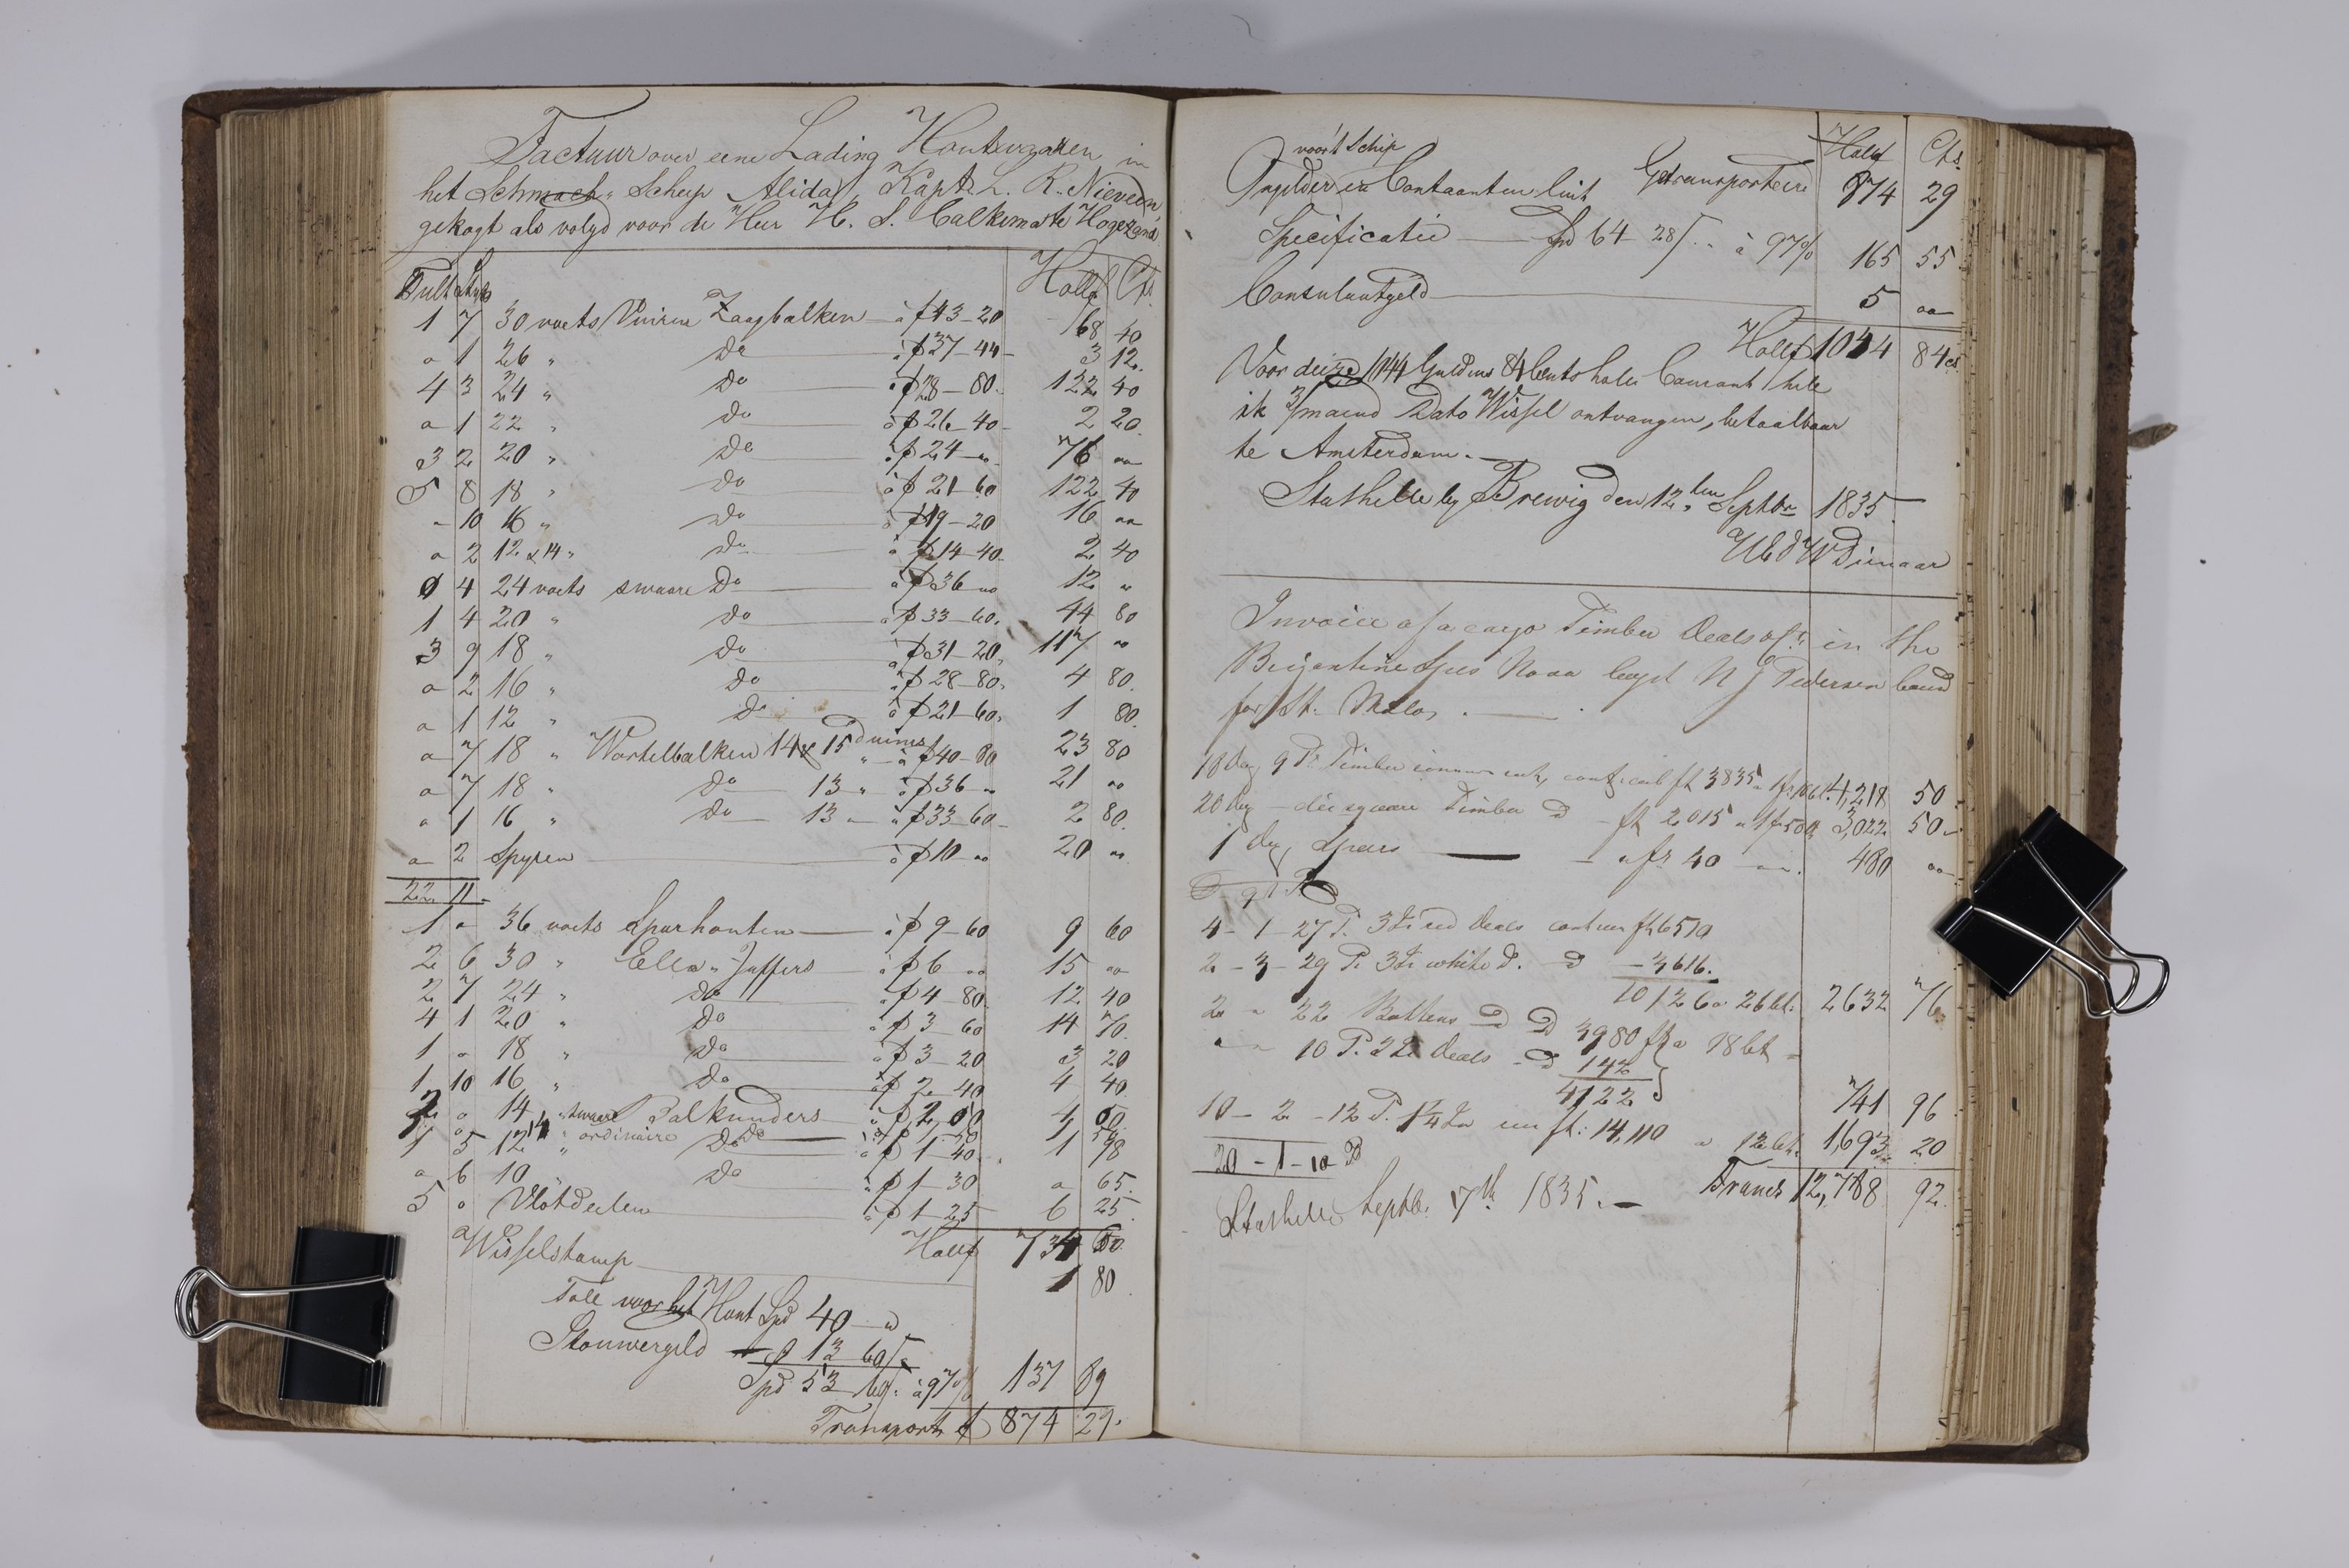 Factuur over eene Lading Houtwaaren in
het Schmack Schip Alida, Kapt. L. R. Nieveen
gekogt als volgd voor de Heer H. S. Calkema te Hogezand
Tult Stk Hollf Cts
1 7 30 voets Vuiren Zaagbalken à f 43-20 68 40
" 1 26 " Do à f 37-44 3 12
4 3 24 " Do à f 28-80 122 40
" 1 22 " Do à f 26-40 2 20
3 2 20 " Do à f 24 - " 76 "
5 8 18 " Do à f 21-60 122 40
- 10 16 " Do à f 19-20 16 "
" 2 12 & 14 " Do à f 14-40 2 40
0 4 24 voets swaare Do à f 36 " 12 "
1 4 20 " Do à f 33-60 44 80
3 9 18 " Do à f 31-20 117 "
" 2 16 " Do à f 28-80 4 80
" 1 12 " Do à f 21-60 1 80
" 7 18 " Wortelbalken 14 & 15 duims à f 40-80 23 80
" 7 18 " Do 13 " à f 36 " 21 "
" 1 16 " Do 13 " à f 33-60 2 80
" 2 Spyren à f 10 " 20 "
22 11
1 " 36 voets Sparhouten à f 9-60 9 60
2 6 30 " Ellen Juffers à f 6 " 15 "
2 7 24 " Do à f 4-80 12 40
4 1 20 " Do à f 3-60 14 70
1 " 18 " Do à f 3-20 3 20
1 10 16 " Do à f 2-40 4 40
2 " 14 " swaare Balkunders à f 2 00 4 00
1 5 12 " ordinaire Do à f 1-40 1 98
" 6 10 " Do à f 1-30 " 65
5 " Vlotdeelen à f 1-25 6 25
Hollf 734 60
Wisselstamp 1 80
Toll voor het Hout Spd 40 - "
Stouwergeld - " 13 60/-
Spd 53 60/. à 97% 137 89
Transport f 874 29.
voor't Schip Hollf Cts.
Ongelder en Contaanten luit Getransporteerd 874 29
Specificatie Spd 64 28/. à 97% 165 55
Consulaatgeld 5 "
Hollf 1044 84 cs
Voor deize 1044 Guldens 84 Cents holl. Courant hebe
ik 3/maand Dato Wissel ontvangen, betaalbaar
te Amsterdam.
Stathelle by Brewig den 12ten Septbr 1835.
UEd W Dienaar
Invoice of a cargo Timber Deals &c. in the
Brigantine Spes Nova Capt N J Pedersen bound
for St. Malo.
10 doz 9 Ps Timber cont. cub ft 3835 4,218 50
20 doz square Timber D ft 2.015 a 1 fr 50 Ct 3,022 50
1 doz Spars a fr 40 480 "
4 - 1 - 27 P. 3 In red deals cont run ft 6510
2 - 3 - 29 P. 3 In white D. D - 3616.
10126 a 26 Ct. 2632 76
2 " 22 Battens D D 3980 ft a 18 Ct
" " 10 P. 2 In deals D 142
4122 741 96
10 - 2 - 12 P. 1 1/4 In run ft: 14,110 a 12 Ct. 1,693 20
20 - 1 - 10 P
Francs 12,788 92
Stathelle Septbr. 17th 1835.